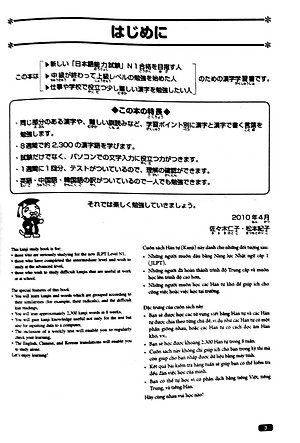 はじめに
この本は
▶新しい「日本語能力試験」N1合格を目指す人
▶中級が終わって上級レベルの勉強を始めた人
▶仕事や学校で役立つ少し難しい漢字を勉強したい人
のための漢字学習書です。
◆この本の特長◆
・同じ部分のある漢字や、難しい訓読みなど、学習ポイント別に漢字と漢字で書く言葉を
勉強します。
・8週間で約2,300の漢字語を学びます。
・試験だけでなく、パソコンでの文字入力に役立つ力がつきます。
・1週間に1回分、テストがついているので、理解の確認ができます。
・英語・中国語・韓国語の訳がついているので一人でも勉強できます。
それでは楽しく勉強していきましょう。
2010年4月
佐々木仁子・松本紀子
This kanji study book is for:
• those who are seriously studying for the new JLPT Level N1,
• those who have completed the intermediate level and wish to
study at the advanced level,
• those who wish to study difficult kanjis that are useful at work
or at school.
The special features of this book:
• You will learn kanjis and words which are grouped according to
their similarities (for example, their radicals), and the difficult
kun readings.
• You will lean approximately 2,300 kanji words in 8 weeks.
• You will gain kanji knowledge useful not only for the test but
also for inputting data to a computer.
• The inclusion of a weekly test will enable you to regularly
check your learning.
• The English, Chinese, and Korean translations will enable you
to study alone.
Let's enjoy learning!
Cuốn sách Hán tự (Kanji) này dành cho những đối tượng sau:
• Những người muốn dân bằng Năng lực Nhật ngữ cấp 1
(JLPTN1).
• Những người đã hoàn thành trình độ Trung cấp và muốn
học lên trình độ cao hơn.
• Những người muốn học các Hán tự khó để giúp ích cho
công việc hoặc việc học tại trường.
Đặc trưng của cuốn sách này
• Bạn sẽ được học các từ vựng viết bằng Hán tự và các Hán
tự được chia theo từng chủ đề, ví dụ như các Hán tự có một
phần giống nhau, hoặc các Hán tự có cách đọc âm Hán
khó, v.v..
• Bạn sẽ học được khoảng 2.300 Hán tự trong 8 tuần.
• Cuốn sách này không chỉ giúp ích cho bạn trong kỳ thi mà
còn giúp cho bạn nhập được dữ liệu bằng máy tính.
• Kết quả bài kiểm tra hàng tuần sẽ giúp bạn có thể kiểm tra
đều đặn việc học của mình.
• Bạn có thể tự học vì có phần dịch bằng tiếng Việt, tiếng
Trung, và tiếng Hàn.
Hãy cùng nhau vui học nào!
3